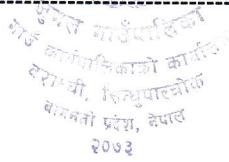 जुगल गाउँपालिका
गाउँ कार्यपालिकाको कार्यालय
सिन्धुपाल्चोक
बागमती प्रदेश, नेपाल
२०७३